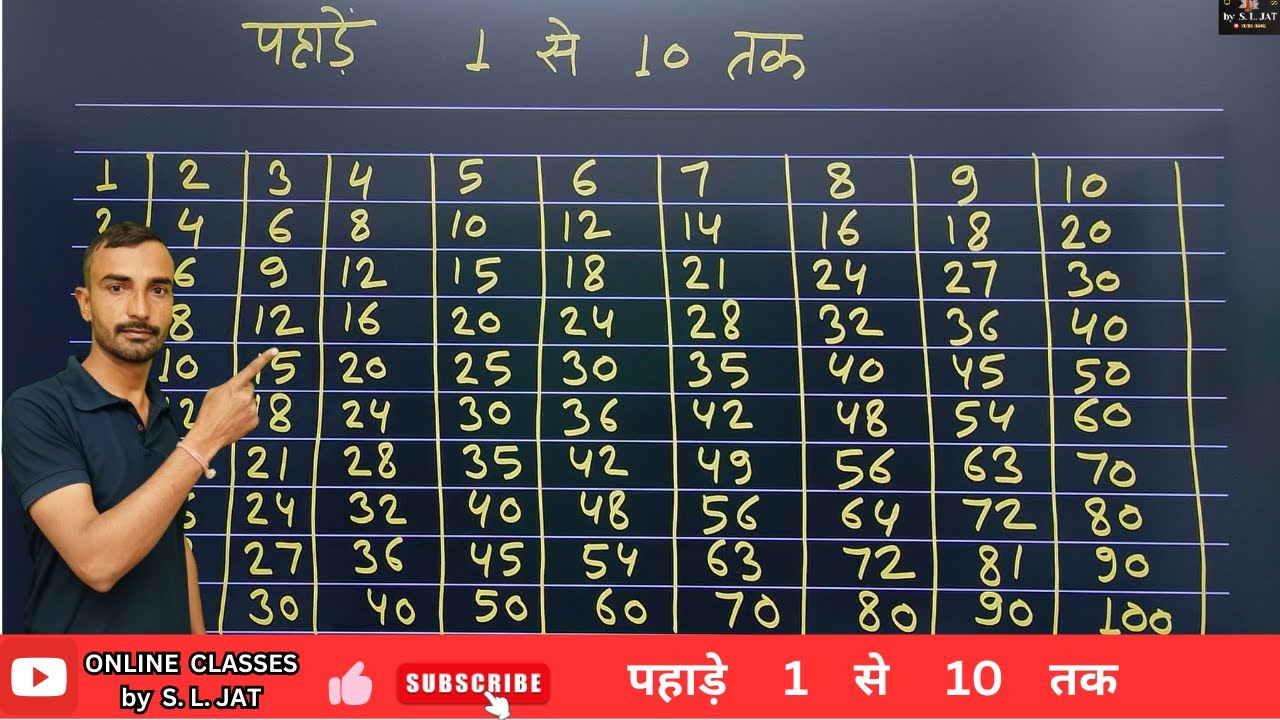 पहाड़ें 1 से 10 तक
by S. L. JAT
1 2 3 4 5 6 7 8 9 10
2 4 6 8 10 12 14 16 18 20
6 9 12 15 18 21 24 27 30
8 12 16 20 24 28 32 36 40
10 15 20 25 30 35 40 45 50
18 24 30 36 42 48 54 60
21 28 35 42 49 56 63 70
24 32 40 48 56 64 72 80
27 36 45 54 63 72 81 90
30 40 50 60 70 80 90 100
ONLINE CLASSES
by S. L. JAT
SUBSCRIBE
पहाड़े 1 से 10 तक